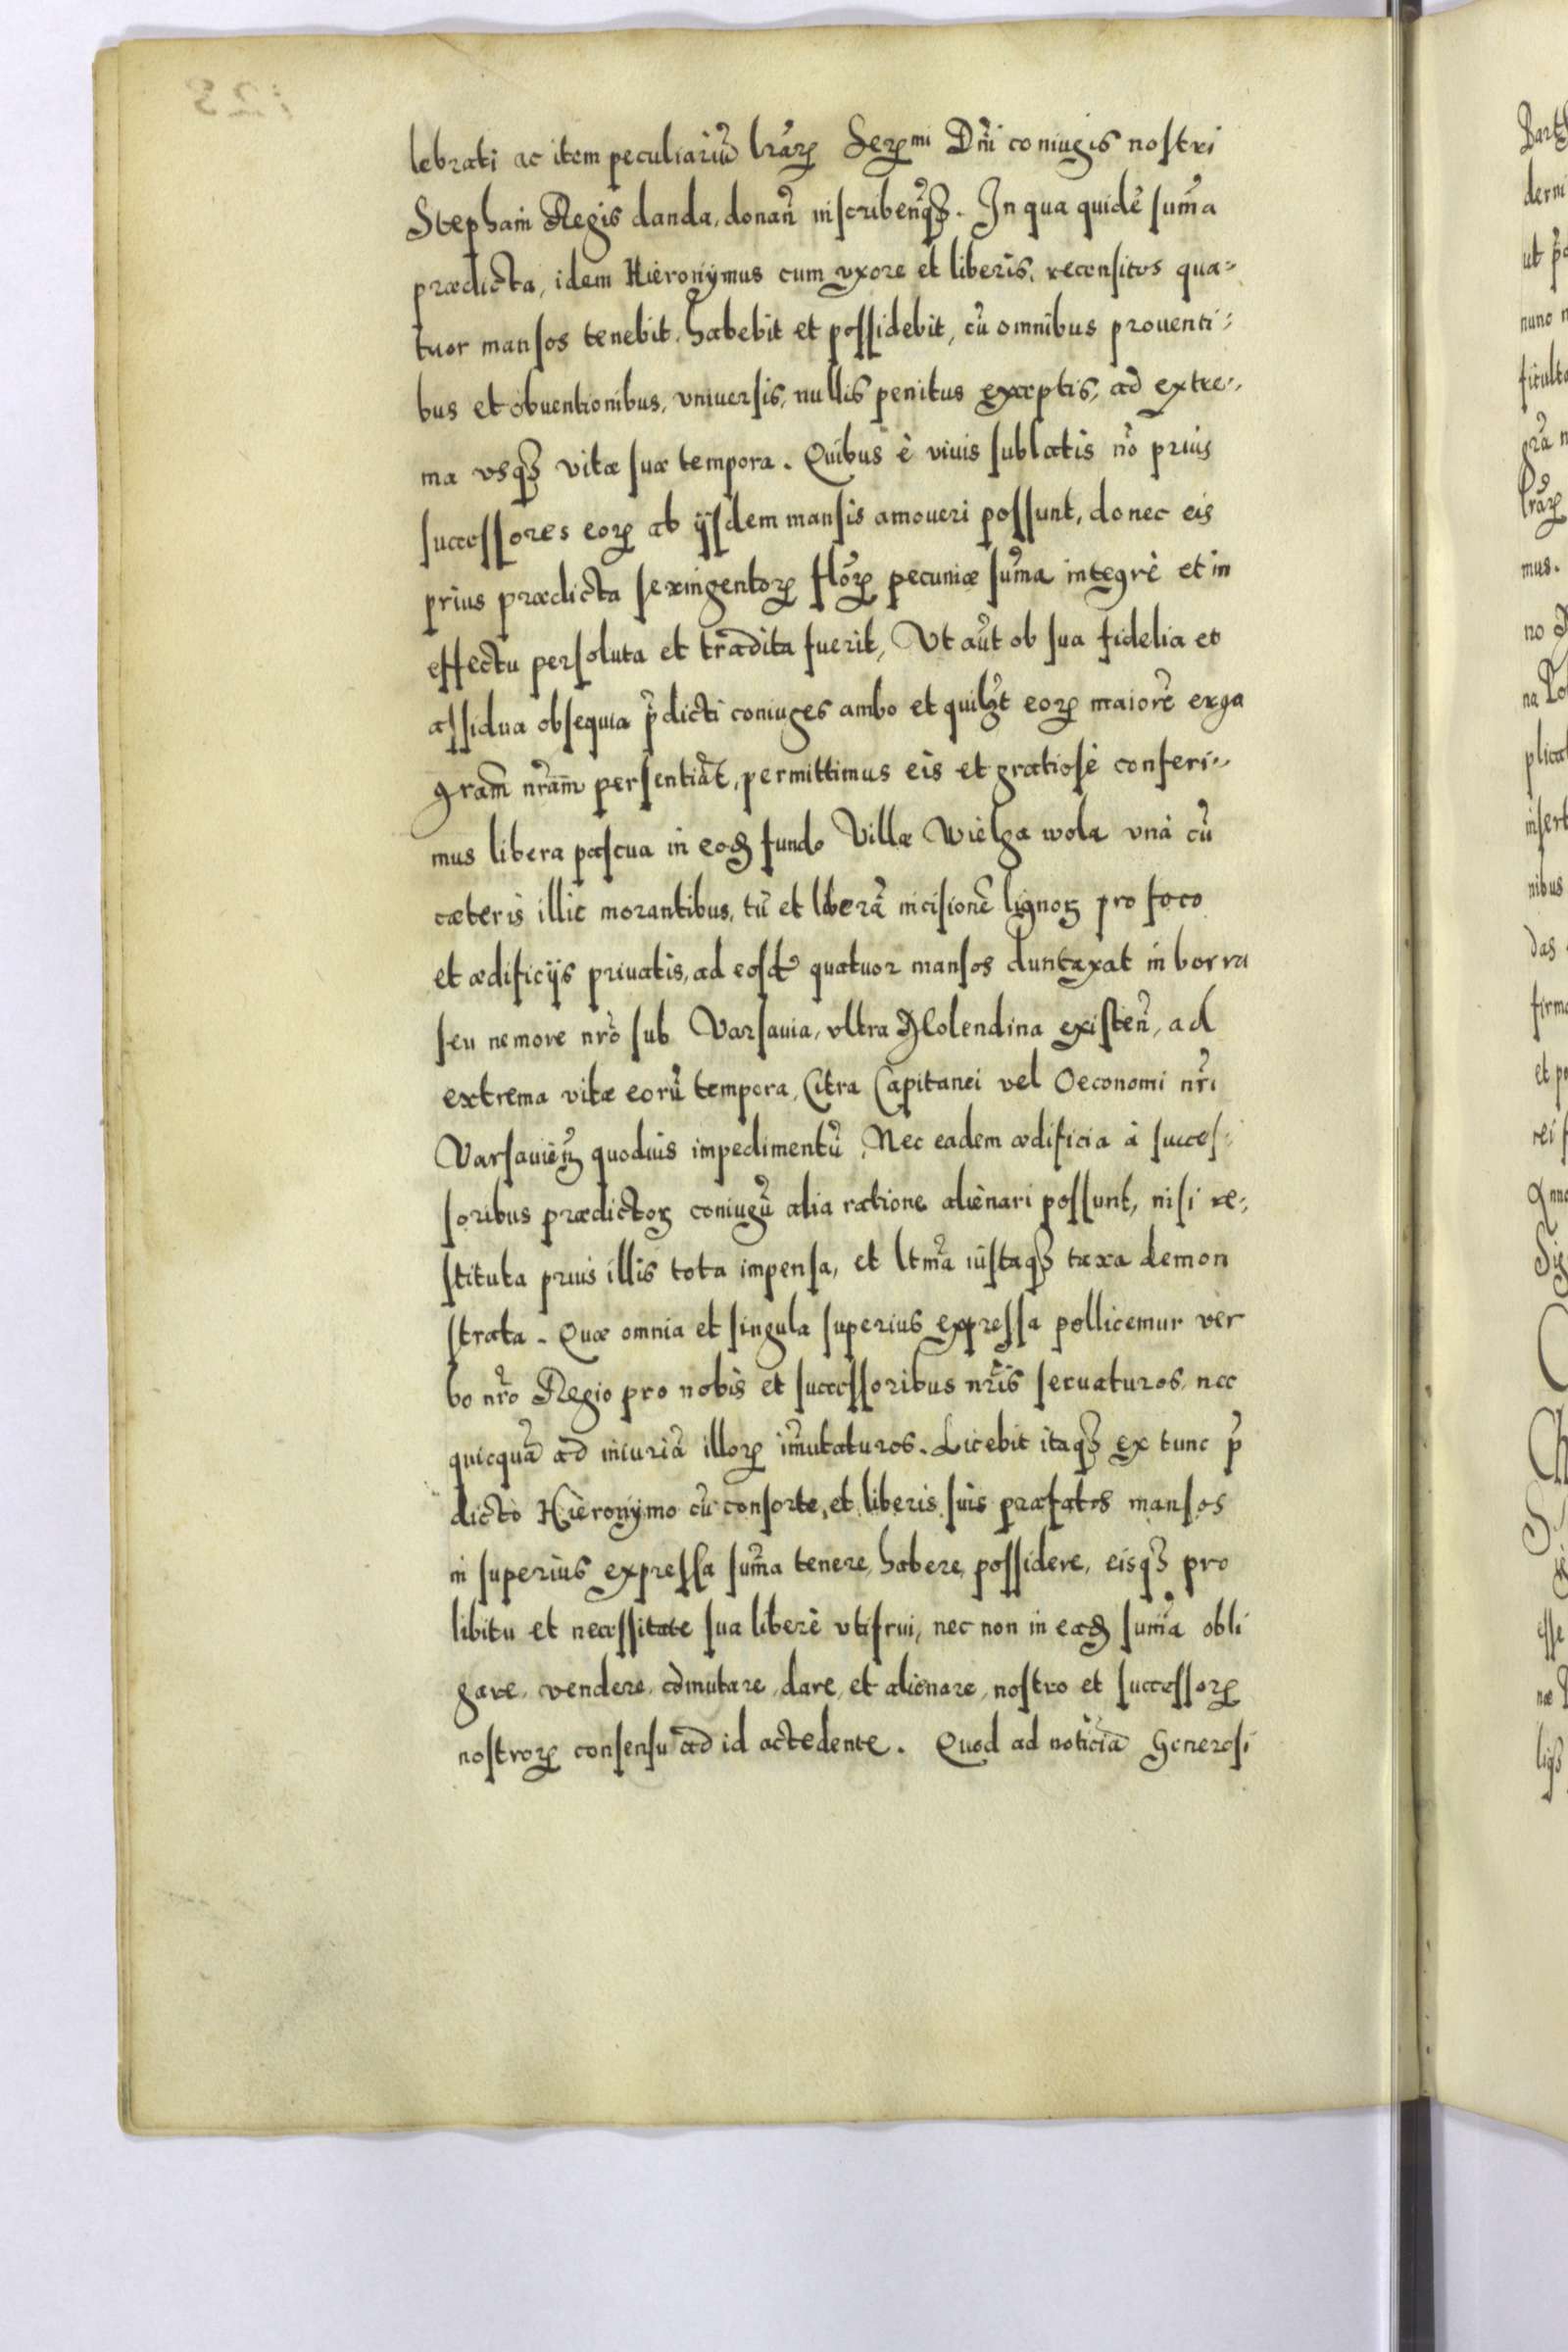 lebrati ac item peculiariũ lr̃arꝝ Serꝝmi Dñi coniugis nostri
Stephani Regis danda, donan̄ inscribenq̃ꝫ. In qua quidẽ sum̃a
prædicta, idem Hieronÿmus cum vxore et liberis, recensitos qua=
tuor mansos tenebit, habebit et possidebit, cũ omnibus prouenti=
bus et obuentionibus, vniuersis, nullis penitus exceptis, ad extre=
ma vsqꝫ vitæ suæ tempora. Quibus è viuis sublatis nõ prius
successores eorꝝ ab ijsdem mansis amoueri possunt, donec eis
prius prædicta sexingentorꝝ flõrꝝ pecuniæ sum̃a integrè et in
effectu persoluta et tradita fuerit, Vt aũt ob sua fidelia et
assidua obsequia p̃dicti coniuges ambo et quilꝫt eorꝝ maiorẽ erga
gram̃ nr̃am persentiãt, permittimus eis et gratiosè conferi=
mus libera pascua in eoꝺ fundo Villæ Wielga wola vnà cũ
cæteris illic morantibus, tũ et liberã incisionẽ lignoꝝ pro foco
et ædificijs priuatis, ad eosd̃ quatuor mansos duntaxat in borra
seu nemore nr̃o sub Varsauia, vltra Molendina existen̄, ad
extrema vitæ eorũ tempora, Citra Capitanei vel Oeconomi nr̃i
Varsauien̄ quoduis impedimentũ, Nec eadem ædificia à succes=
soribus prædictoꝝ coniugũ alia ratione alienari possunt, nisi re=
stituta prius illis tota impensa, et ltm̃a iustaqꝫ taxa demon
strata. Quæ omnia et singula superius expressa pollicemur ver
bo nr̃o Regio pro nobis et successoribus nr̃is seruaturos, nec
quicquã ad iniuriã illorꝝ im̃utaturos. Licebit itaqꝫ ex tunc p̃
dicto Hieronÿmo cũ consorte, et liberis suis præfatos mansos
in superius expressa sum̃a tenere, habere, possidere, eisqꝫ pro
libitu et necessitate sua liberè vtifrui, nec non in eaꝺ sum̃a obli
gare, vendere, cõmutare, dare, et alienare, nostro et successorꝝ
nostrorꝝ consensu ad id accedente. Quod ad noticiã Generosi